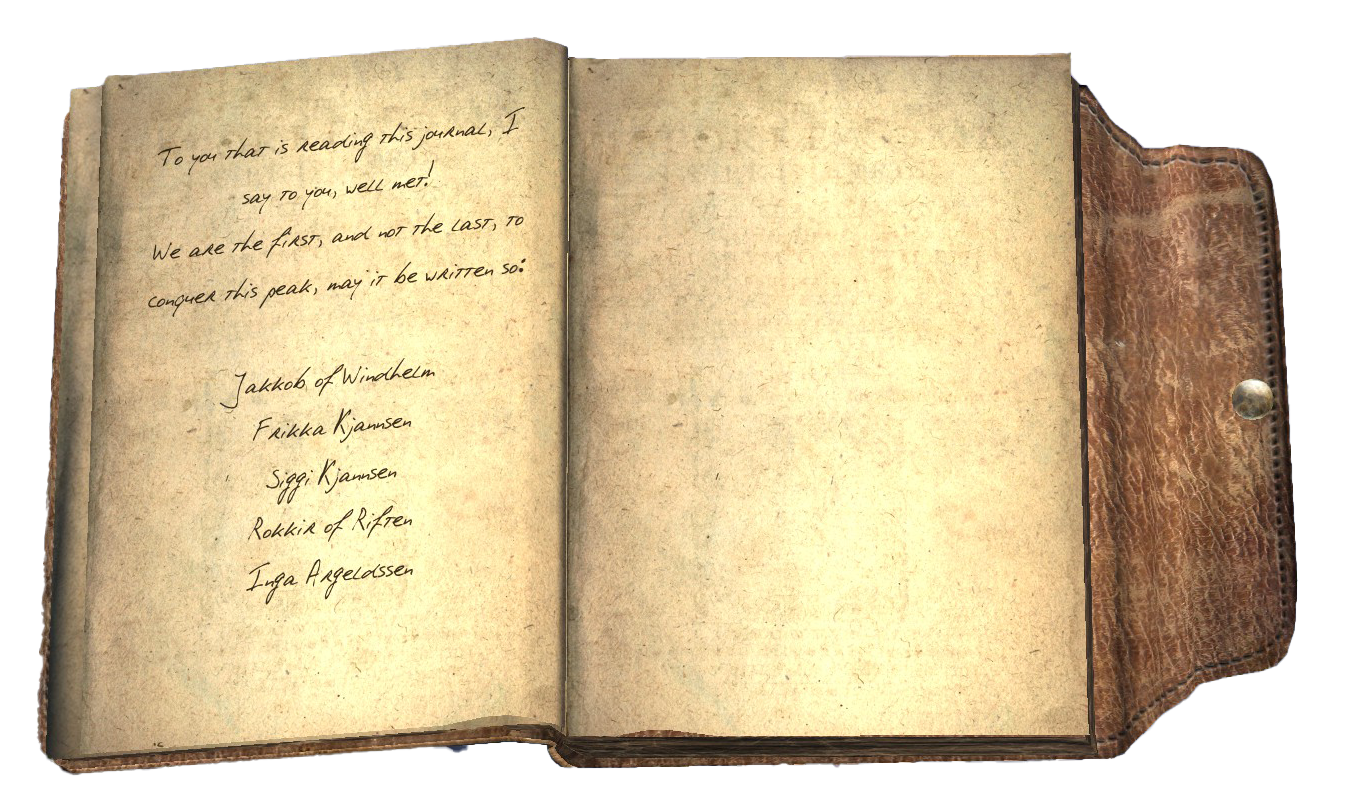 To you that is reading this journal, I
say to you, well met!
We are the first, and not the last, to
conquer this peak, may it be written so:
Jakkob of Windhelm
Frikka Kjannsen
Siggi Kjannsen
Rokkir of Riften
Inga Argeldssen